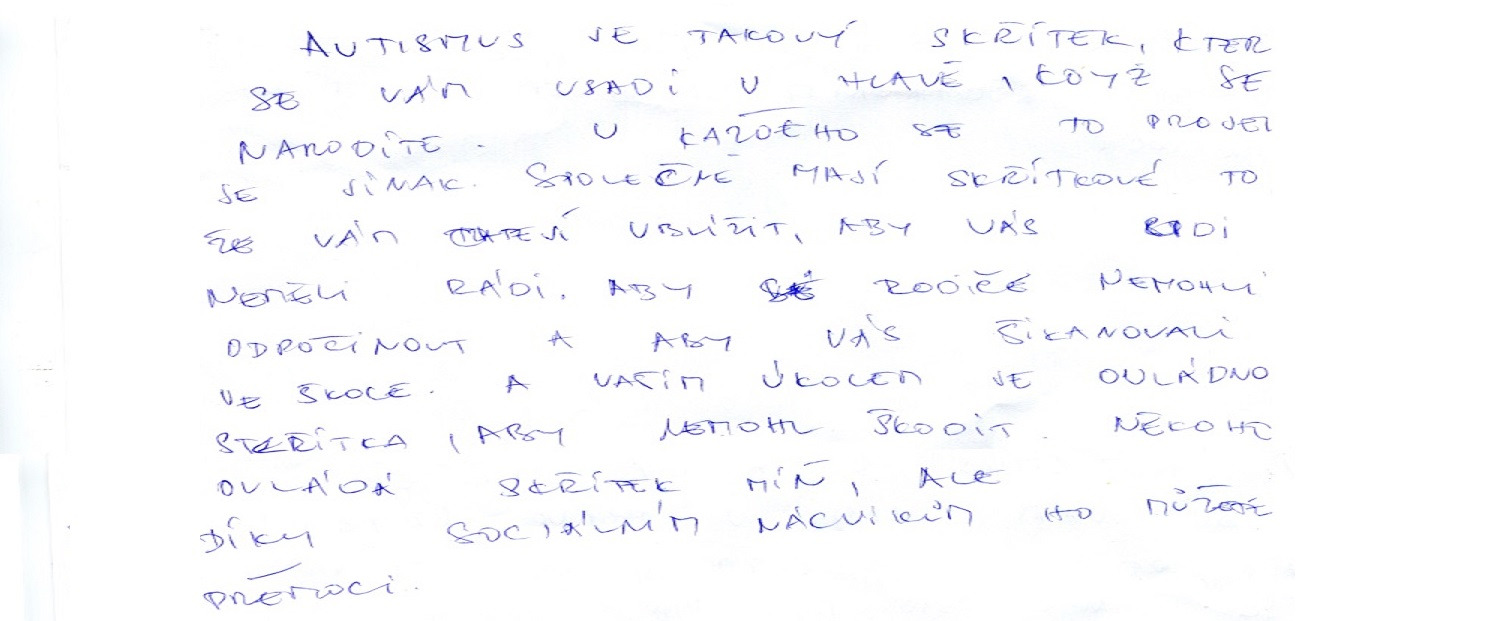 AUTISMUS JE TAKOVÝ SKŘÍTEK, KTER
SE VÁM USADÍ V HLAVĚ, KDYŽ SE
NARODÍTE. U KAŽDÉHO SE TO PROJEV
JE JINAK. SPOLEČNÉ MAJÍ SKŘÍTKOVÉ TO
ŽE VÁM UBLÍŽIT, ABY VÁS LIDI
NEMĚLI RÁDI, ABY RODIČE NEMOHLI
ODPOČINOUT A ABY VÁS ŠIKANOVALI
VE ŠKOLE. A VAŠÍM ÚKOLEM JE OVLÁDNO
SKŘÍTKA, ABY NEMOHL ŠKODIT. NĚKOHO
OVLÁDÁ SKŘÍTEK MÍŇ, ALE
DÍKY SOCIÁLNÍM NÁCVIKŮM HO MŮŽETE
PŘEMOCI.